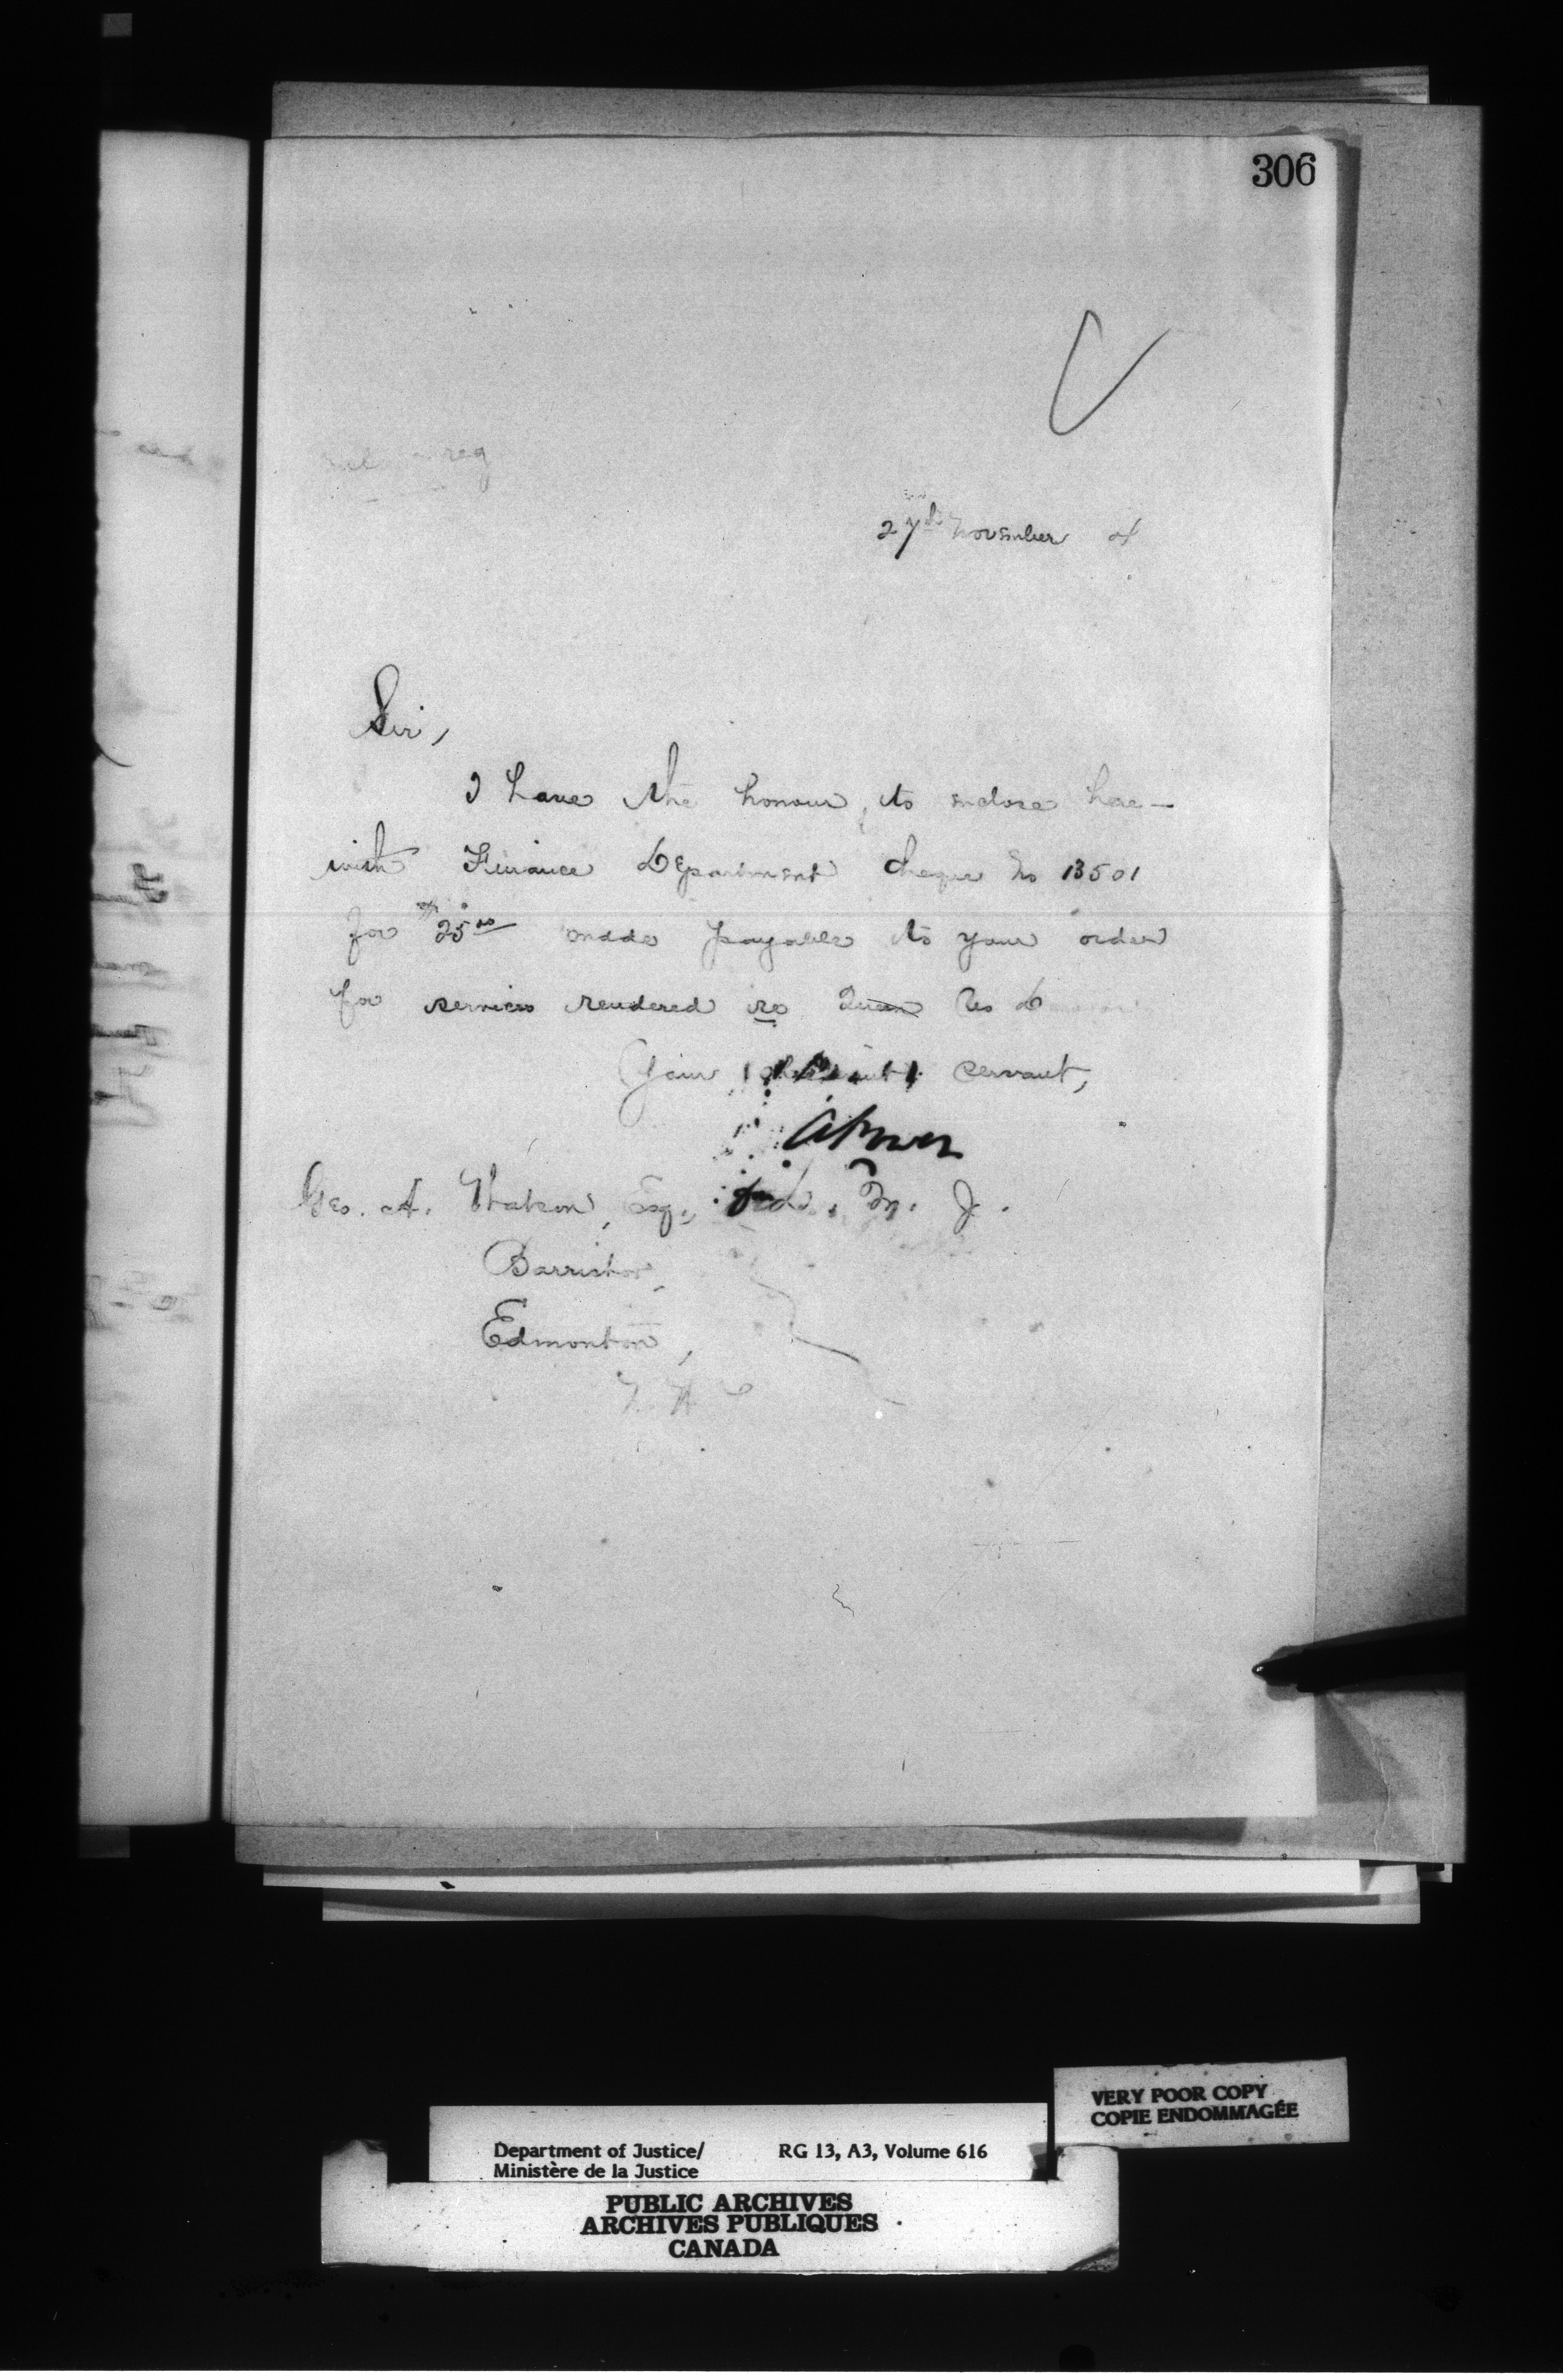 306
reg
27th November
Sir,
I have the honour to enclose here-
with Finance Department cheque No 13501
for $25.00 made payable to your order
for services rendered re
Your obedient servant,
Geo. A. Watson, Esq.,
Barrister,
Edmonton,
VERY POOR COPY
COPIE ENDOMMAGÉE
Department of Justice/
Ministère de la Justice
RG 13, A3, Volume 616
PUBLIC ARCHIVES
ARCHIVES PUBLIQUES
CANADA